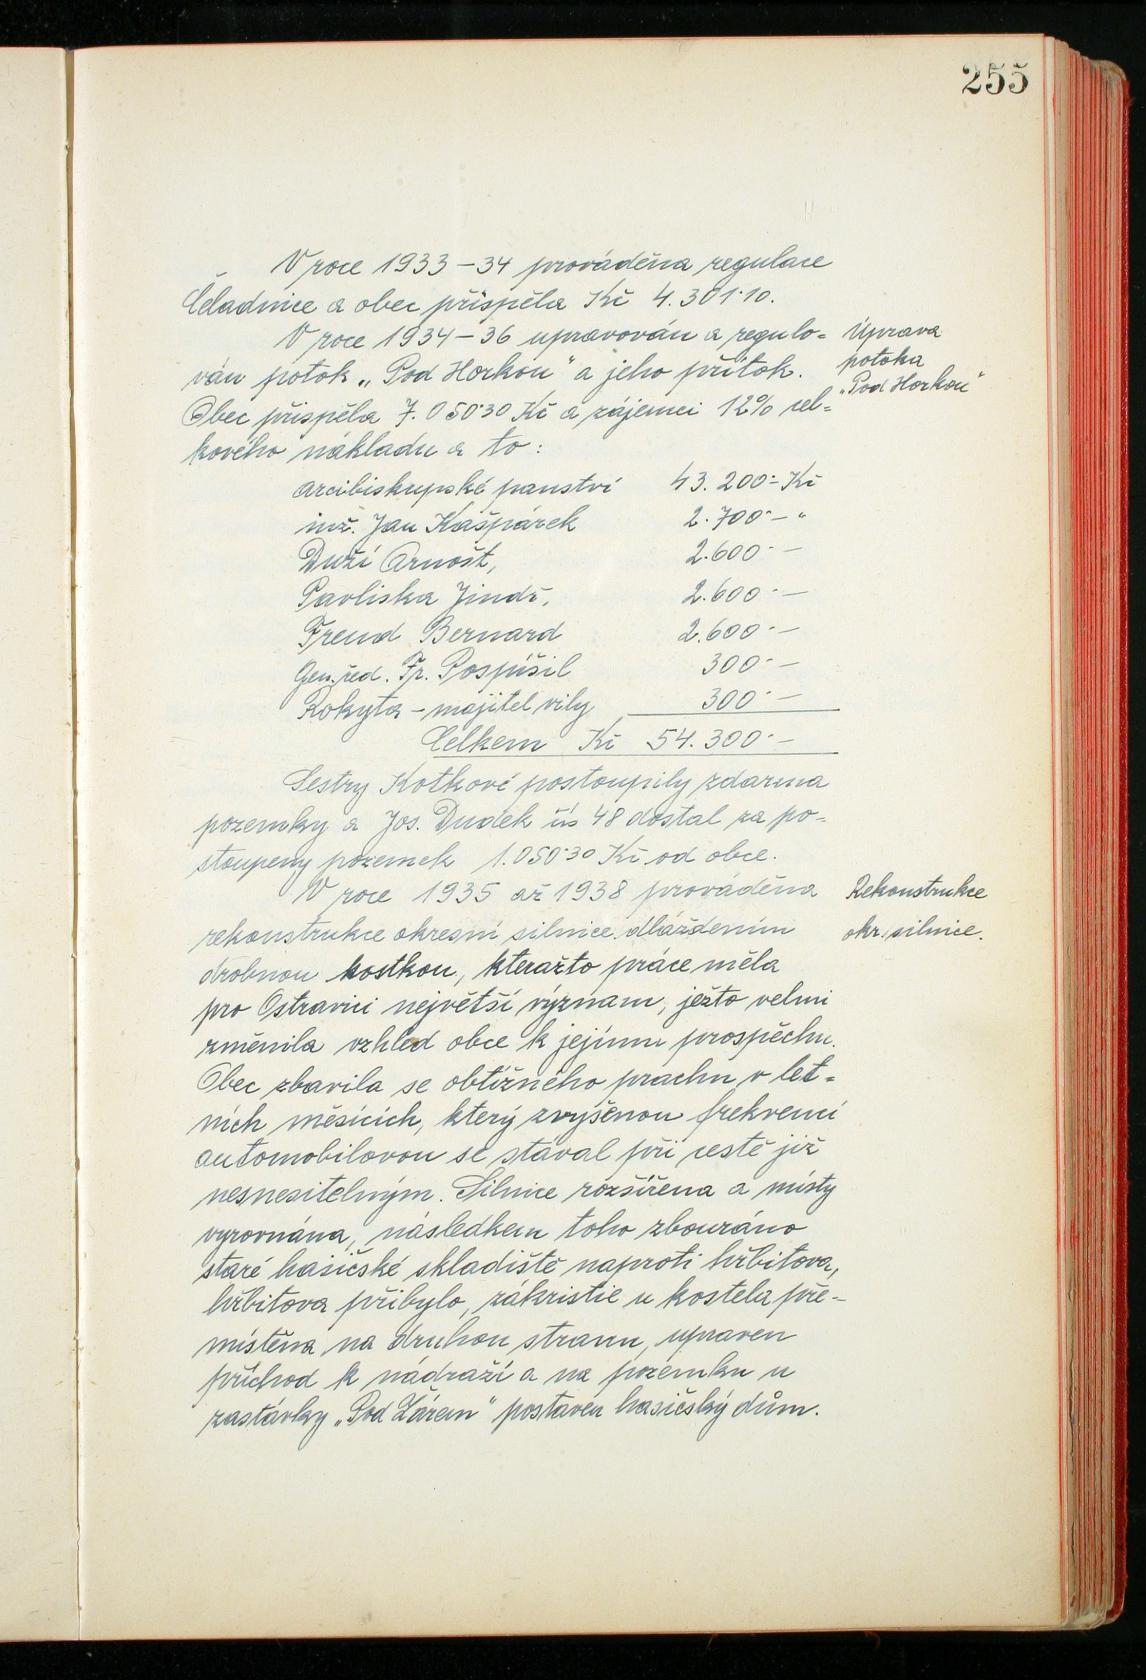 255
V roce 1933–34 prováděna regulace
Čeladnice a obec přispěla Kč 4.301·10.
V roce 1934–36 upravován a regulo=
ván potok „Pod Horkou" a jeho přítok.
Úprava
potoka
„Pod Horkou"
Obec přispěla 7.050·30 Kč a zájemci 12% cel=
kového nákladu a to:
arcibiskupské panství 43.200·– Kč
inž. Jan Kašpárek 2.700·– "
Duží Arnošt, 2.600·–
Pavliska Jindř. 2.600·–
Freud Bernard 2.600·–
Gen. řed. Fr. Pospíšil 300·–
Rokyta – majitel vily 300·–
Celkem Kč 54.300·–
Sestry Kotkové postoupily zdarma
pozemky a Jos. Dudek čís 48 dostal za po=
stoupený pozemek 1.050·30 Kč od obce.
V roce 1935 až 1938 prováděna
rekonstrukce okresní silnice dlážděním
Rekonstrukce
okr. silnice.
drobnou kostkou, kteražto práce měla
pro Ostravici největší význam, ježto velmi
změnila vzhled obce k jejímu prospěchu.
Obec zbavila se obtížného prachu v let=
ních měsících, který zvýšenou frekvencí
automobilovou se stával při cestě již
nesnesitelným. Silnice rozšířena a místy
vyrovnána, následkem toho zbouráno
staré hasičské skladiště naproti hřbitova,
hřbitova přibylo, zákristie u kostela pře–
místěna na druhou stranu, upraven
příchod k nádraží a na pozemku u
zastávky „Pod Žárem" postaven hasičský dům.